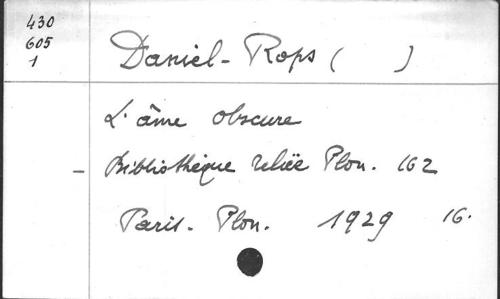 430
605
1
Daniel-Rops ( )
L'âme obscure
- Bibliothèque reliée Plon. 162
Paris. Plon. 1929 16.